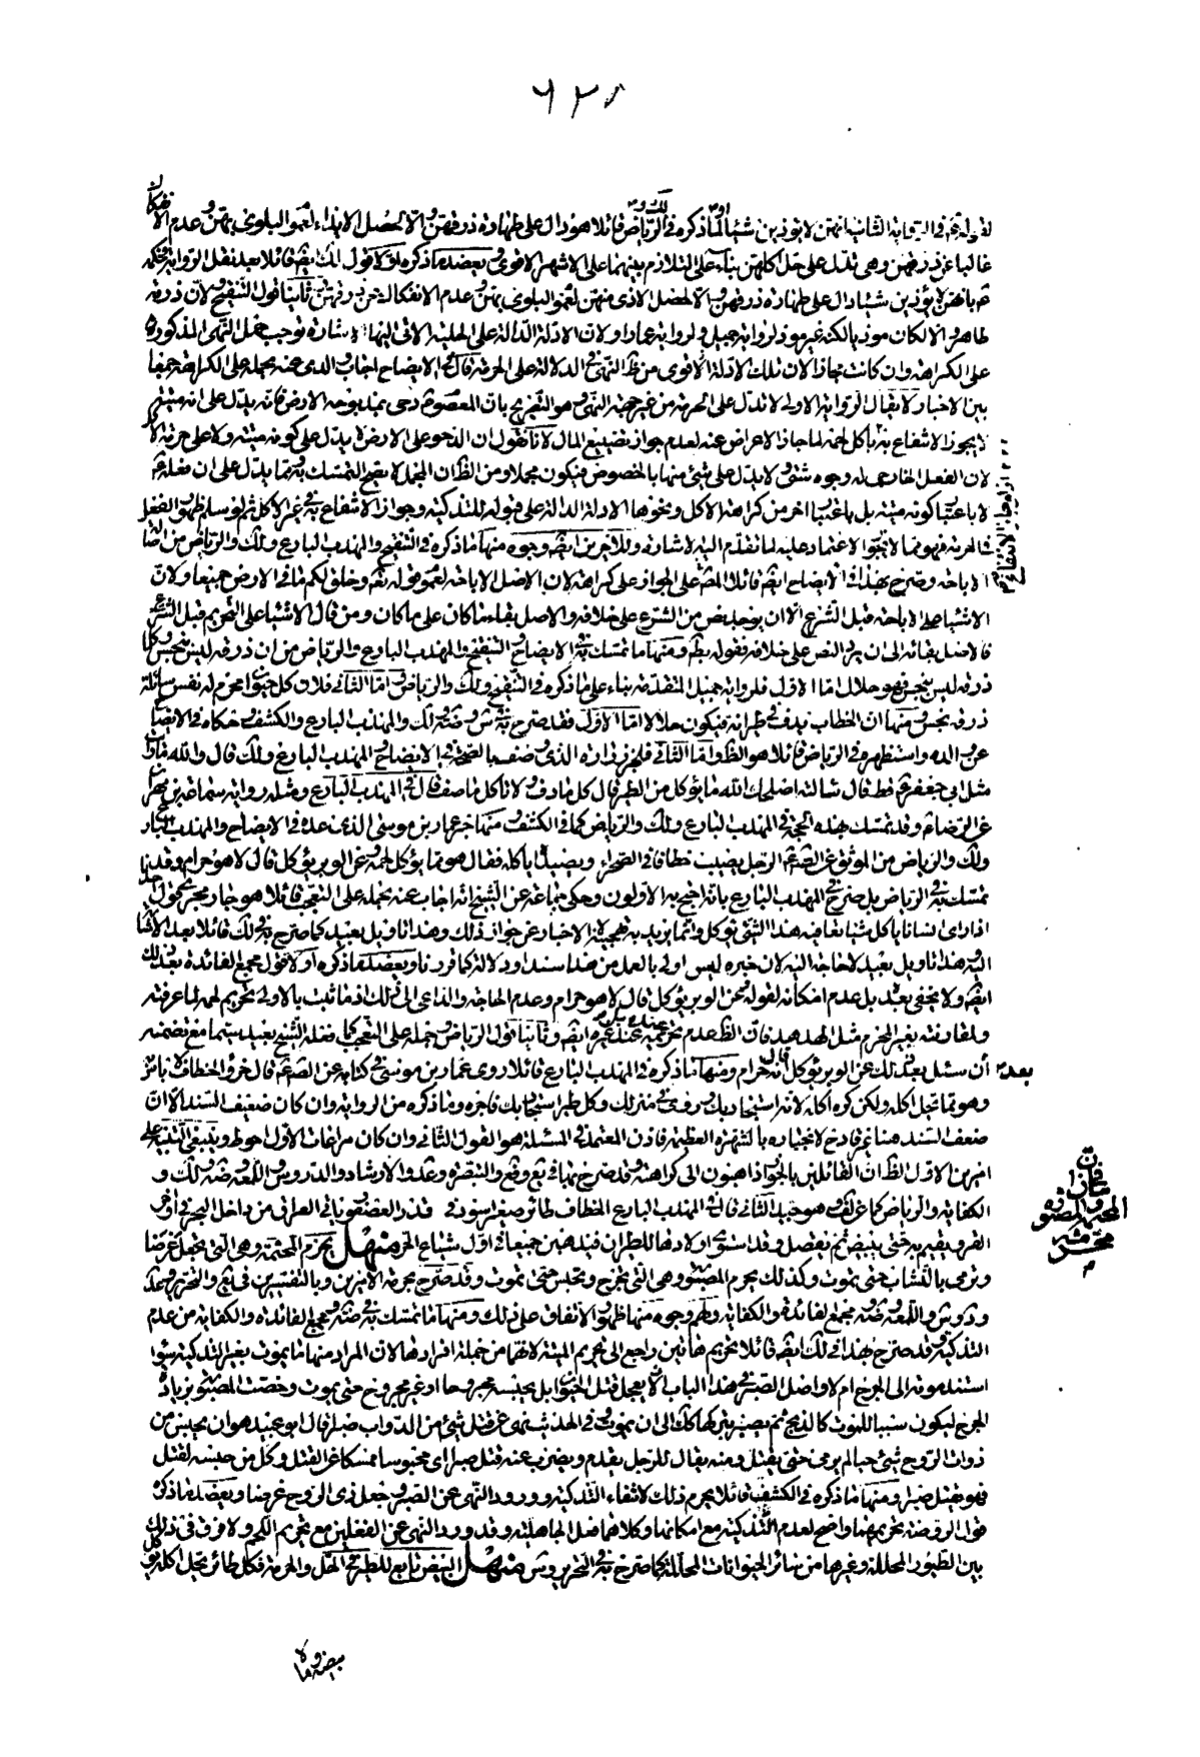 ٦٢٨
لقوله في الرواية الثانية انهن لا يؤذين شيئا لما ذكره في الرياض قائلا هو دال على طهارة ذرقهن والا لحصل الايذاء لعموم البلوى بهن وعدم الانفكاك
غالبا عن ذرقهن وهى تدل على حل اكلهن بناء على التلازم بينهما على الاشهر الاقوى ويعضده ما ذكره اولا قول لك ايضا قائلا بعد نقل الرواية
بانهن لا يؤذين شيئا دال على طهارة ذرقهن والا لحصل الاذى منهن لعموم البلوى بهن وعدم الانفكاك عن ذرقهن وثانيا قول التنقيح لان ذرقه
طاهر والا لكان موذيا لكنه غير موذ لرواية جميل ولرواية عمار ولان الادلة الدالة على الحلية الاتى اليها الاشارة توجب حمل النهى المذكورة
على الكراهة وان كانت مجازا لان تلك الادلة اقوى من النهى في الدلالة على الحرمة قال في الايضاح اجاب والدى عنه بحمله على الكراهة جمعا
بين الاخبار لا يقال الرواية الاولى لا تدل على الحرمة من جهة النهى وهو التصريح بان المعصوم دحى به لوجه الارض فانه يدل على انه ميتة
لا يجوز الانتفاع به باكل لحمه لما جاز الاعراض عنه لعدم جواز تضييع المال لانا نقول ان الدحو على الارض لا يدل على كونه ميتة ولا على حرمة
لان الفعل الخارجى له وجوه شتى ولا يدل على شئ منها بالخصوص فيكون مجملا ومن الظ ان المجمل لا يصح التمسك به
لا باعتبار كونه ميتة بل باعتبار اخر من كراهة الاكل ونحوها الادلة الدالة على قبوله للتذكية وجواز الانتفاع به في غير الاكل ثم لو سلم ظهور الفعل
في الحرمة فهو مما لا يجوز الاعتماد عليه لما تقدم اليه الاشارة وللاخرين ايضا وجوه منها ما ذكره في التنقيح والمهذب البارع ولك والرياض من اصالة
الاباحة وصرح بهذا في الايضاح ايضا قائلا على الجواز على كراهة لان الاصل الاباحة لعموم قوله تعه وخلق لكم ما في الارض جميعا ولان
الاشياء على الاباحة قبل الشرع الا ان يوجد نص من الشرع على خلافه والاصل بقاء ما كان على ما كان ومن قال الاشياء على التحريم قبل الشرع
فالاصل بقائه الى ان يرد النص على خلافه ومنها ما تمسك به في الايضاح والتنقيح والمهذب البارع والرياض من ان ذرقه ليس بنجس وكلما
ذرقه ليس بنجس فهو حلال اما الاول فلرواية جميل المتقدمة بناء على ما ذكره في التنقيح ولك والرياض واما الثانى فلان كل حيوان محرم له نفس سائلة
ذرقه نجس ومنها ان الخطاف يدف في طيرانه فيكون حلالا اما الاول فقد صرح به في لك والمهذب البارع والكشف وحكاه في الايضاح
عن والده واستظهره في الرياض قائلا هو الظ واما الثانى فلخبر زرارة الذى وصف بالصحة في الايضاح والمهذب البارع ولك قال والله ما رايت
مثل ابى جعفر قط قال سالته اصلحك الله ما يؤكل من الطير قال كل ما دف ولا تاكل ما صف قال في المهذب البارع ومثله رواية سماعة بن مهران
عن الرضا وقد تمسك بهذه الحجة في المهذب البارع ولك والرياض كما في الكشف ومنها خبر عمار بن موسى الذى عده في الايضاح والمهذب البارع
ولك والرياض من الموثق عن الصادق الرجل يصيب خطافا في الصحراء ويصيده اياكله فقال هو مما يؤكل لحمه وعن الوبر يؤكل قال لا هو حرام وقد
تمسك به في الرياض بل صرح في المهذب البارع بانه احتج به الاولون وحكى جماعة عن الشيخ انه اجاب عنه بحمله على التعجب قائلا هو جار مجرى قول احدنا
اذا راى انسانا ياكل شيئا تعافيه هذا الشئ يؤكل وانما يريد به تهجينه لا الاخبار عن جواز ذلك وهذا تاويل بعيد كما صرح به في لك قائلا بعد الاشارة
اليه هذا تاويل بعيد لا حاجة اليه لان خبره ليس اولى بالعمل من هذا سندا ودلالة كما قررناه ويعضد ما ذكره اولا قول مجمع الفائدة بعد ذلك
ايضا ولا يخفى بعده بل عدم امكانه لقوله عن الوبر يؤكل قال لا هو حرام وعدم الحاجة والداعى الى ذلك اذ ما ثبت بالاولى تحريم لحمه لما عرفته
ولمقارنته بغير المحرم مثل الهدهد فان الظ عدم تحريمه عنده وعند غيره ايضا وثانيا قول الرياض وحمله على التعجب كما فعله الشيخ بعيد سيما مع تضمنه
بعد ان سئل بعد ذلك عن الوبر يؤكل قال انه حرام ومنها ما ذكره في المهذب البارع قائلا روى عمار بن موسى في كتابه عن الصادق قال خرؤ الخطاف لا باس
وهو مما يحل اكله ولكن كره اكله لانه استجار بك وروى في منزلك وكل طير استجار بك فاجره وما ذكره من الرواية وان كان ضعيف السند الا ان
ضعف السند هنا غير قادح لانجباره بالشهرة العظيمة فاذن المعتمد في المسئلة هو القول الثانى وان كان مراعات الاول احوط وينبغى التنبيه على
امرين الاول الظ ان القائلين بالجواز ذاهبون الى كراهته وقد صرح بها في يع وفع والتبصرة وعد والارشاد والدروس واللمعة وضه ولك و
الكفاية والرياض كما عن لف وهو جيد الثانى قال في المهذب البارع الخطاف طائر صغير اسود في قدر العصفور ياتى العراق من داخل البحر في اوقات
القر ويقيم به حتى يبيض ثم يقفص وقد استوى اولاده للطيران فيذهبن جميعا في اول شباع الحر منهل يحرم المجثمة وهى التى تجعل غرضا
وترمى بالنشاب حتى تموت وكذلك يحرم المصبورة وهى التى تجرح وتحبس حتى تموت وقد صرح بحرمة الامرين وبالتفسيرين في يع والتحرير وعد
ود وش واللمعة وضه ومجمع الفائدة والكفاية ولهم وجوه منها ظهور الاتفاق على ذلك ومنها ما تمسك به في ضه ومجمع الفائدة والكفاية من عدم
التذكية وقد صرح بهذا في لك ايضا قائلا تحريم هاتين راجع الى تحريم الميتة لانهما من جملة افرادها لان المراد منها ما يموت بغير التذكية سواء
استند موته الى الجرح ام لا واصل الصبر في هذا الباب ان لا يعجل قتل الحيوان بل يحبسه مجروحا او غير مجروح حتى يموت وخصت المصبورة بزيادة
الجرح ليكون سببا للموت كالذبح ثم يصبر يتركها كك الى ان يموت وفى الحديث نهى عن قتل شئ من الدواب صبرا قال ابو عبيد هو ان يحبس من
ذوات الروح شئ حيا ثم يرمى حتى يقتل ومنه يقال للرجل يقدم ويضرب عنقه قتل صبرا اى محبوسا ممسكا عن القتل وكل من حبسه لقتل
فهو قتل صبر ومنها ما ذكره في الكشف قائلا يحرم ذلك لانتفاء التذكية وورود النهى عن الصبر وجعل ذى الروح غرضا ويعضد ما ذكره
قول الروضة تحريمهما واضح لعدم التذكية مع امكانها وكلاهما فعل الجاهلية وقد ورد النهى عن الفعلين مع تحريم اللحم ولا فرق في ذلك
بين الطيور المحللة وغيرها من سائر الحيوانات المحللة كما صرح به في التحرير وش منهل البيض تابع للطير في الحل والحرمة فكل طائر يحل اكله يؤكل
بيضه وما لا